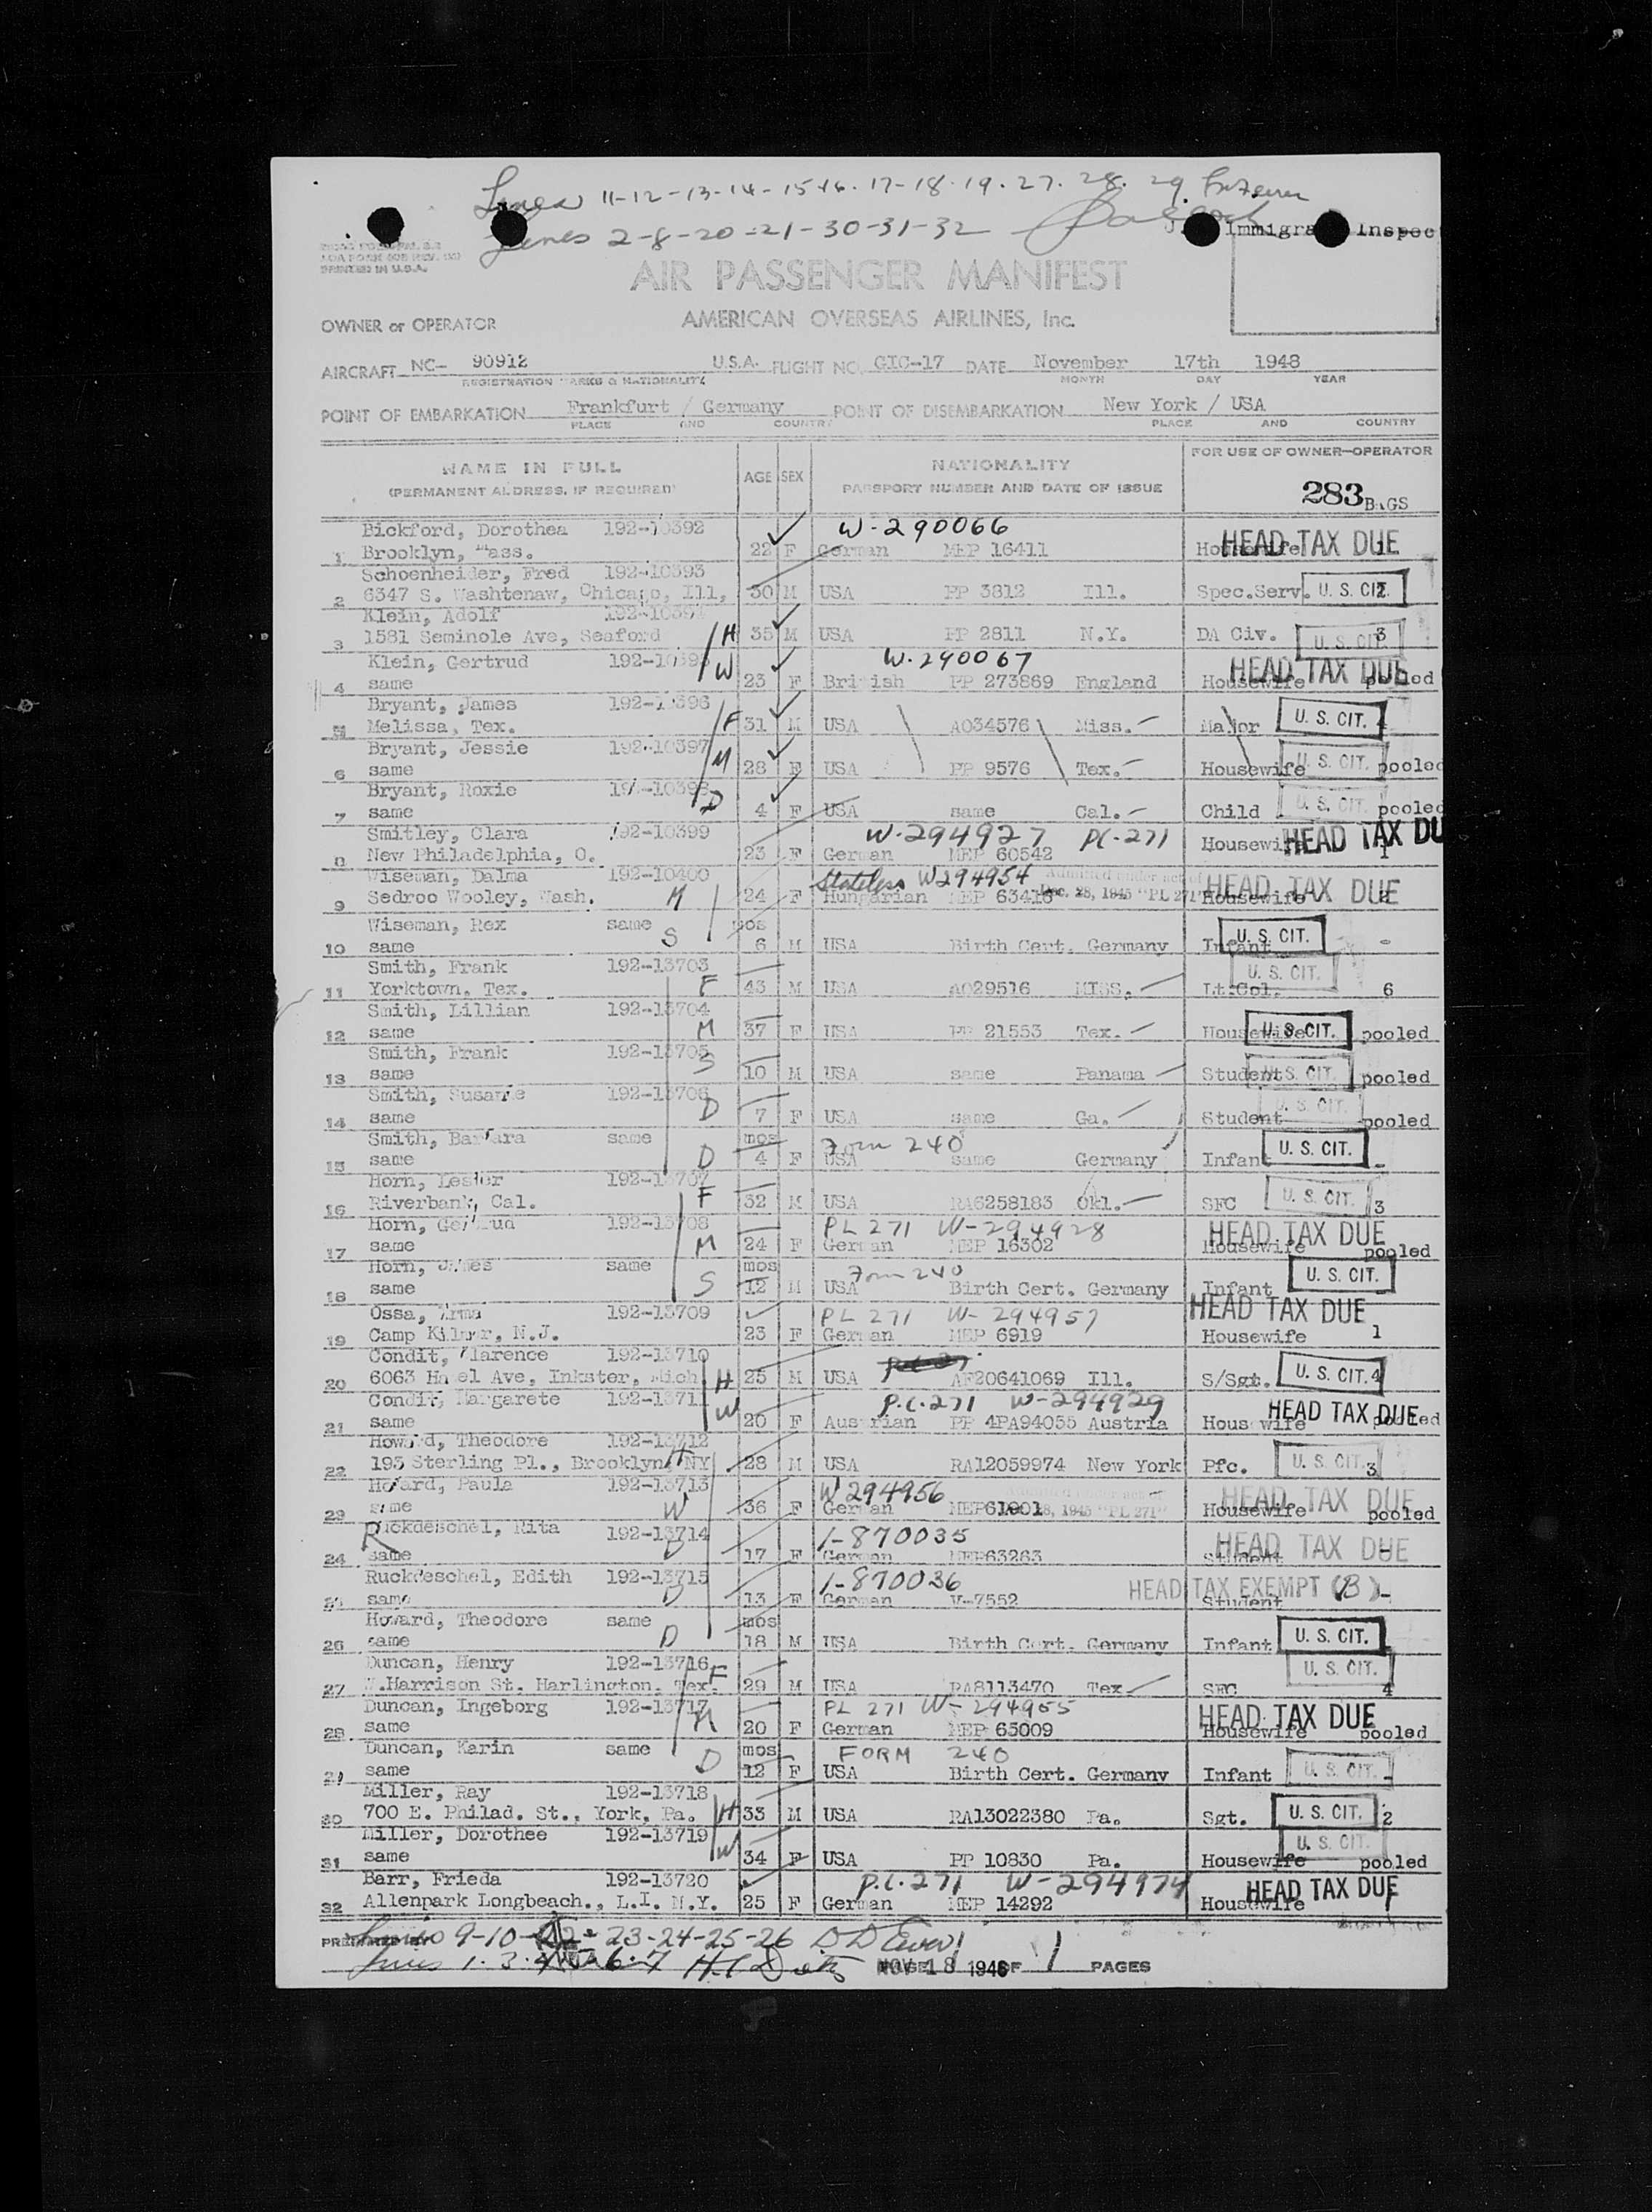 Lines 11-12-13-14-15+16-17-18-19-27-28-29
Lines 2-8-20-21-30-31-32
Immigra Inspec
PRINTED IN U.S.A.
AIR PASSENGER MANIFEST
OWNER or OPERATOR AMERICAN OVERSEAS AIRLINES, Inc.
AIRCRAFT NC- 90912 U.S.A. FLIGHT NO. GIC-17 DATE November 17th 1948
REGISTRATION MARKS & NATIONALITY MONTH DAY YEAR
POINT OF EMBARKATION Frankfurt / Germany POINT OF DISEMBARKATION New York / USA
PLACE AND COUNTRY PLACE AND COUNTRY
NAME IN FULL AGE SEX NATIONALITY FOR USE OF OWNER-OPERATOR
(PERMANENT ADDRESS, IF REQUIRED) PASSPORT NUMBER AND DATE OF ISSUE 283 BAGS
Bickford, Dorothea 192-10392 W-290066
1 Brooklyn, Mass. 22 F German MEP 16411 Housewife HEAD TAX DUE 1
Schoenheider, Fred 192-10393
2 6347 S. Washtenaw, Chicago, Ill, 30 M USA PP 3812 Ill. Spec.Serv. U. S. CIT.
Klein, Adolf 192-10394
3 1581 Seminole Ave, Seaford H 35 M USA PP 2811 N.Y. DA Civ. U. S. CIT 3
Klein, Gertrud 192-10395 W W-290067
4 same 23 F British PP 273869 England Housewife HEAD TAX DUE pooled
Bryant, James 192-10396
5 Melissa, Tex. F 31 M USA AO34576 Miss. Major U. S. CIT. 4
Bryant, Jessie 192-10397
6 same M 28 F USA PP 9576 Tex. Housewife U. S. CIT. pooled
Bryant, Roxie 192-10398
7 same D 4 F USA same Cal. Child U. S. CIT. pooled
Smitley, Clara 192-10399 W-294927 PL-271
8 New Philadelphia, O. 23 F German MEP 60542 Housewife HEAD TAX DU 1
Wiseman, Dalma 192-10400 Stateless W294954 Admitted under act of
9 Sedroo Wooley, Wash. M 24 F Hungarian MEP 63416 Dec. 28, 1945 "PL 271" Housewife HEAD TAX DUE 2
Wiseman, Rex same S mos
10 same 6 M USA Birth Cert. Germany Infant U. S. CIT. -
Smith, Frank 192-13703
11 Yorktown, Tex. F 43 M USA AO29516 MISS. Lt.Col. U. S. CIT. 6
Smith, Lillian 192-13704
12 same M 37 F USA PP 21553 Tex. Housewife U. S. CIT. pooled
Smith, Frank 192-13705
13 same S 10 M USA same Panama Student U. S. CIT. pooled
Smith, Susanne 192-13706
14 same D 7 F USA same Ga. Student U. S. CIT. pooled
Smith, Barbara same mos Form 240
15 same D 4 F USA same Germany Infant U. S. CIT. -
Horn, Lester 192-13707
16 Riverbank, Cal. F 32 M USA RA6258183 Okl. SFC U. S. CIT. 3
Horn, Gertrud 192-13708 PL 271 W-294928
17 same M 24 F German MEP 16302 Housewife HEAD TAX DUE pooled
Horn, James same mos Form 240
18 same S 12 M USA Birth Cert. Germany Infant U. S. CIT.
Ossa, Irma 192-13709 PL 271 W-294957 HEAD TAX DUE
19 Camp Kilmer, N.J. 23 F German MEP 6919 Housewife 1
Condit, Clarence 192-13710
20 6063 Hazel Ave, Inkster, Mich H 25 M USA AF20641069 Ill. S/Sgt. U. S. CIT. 4
Condit, Margarete 192-13711 W P.L.271 W-294929
21 same 20 F Austrian PP 4PA94055 Austria Housewife HEAD TAX DUE pooled
Howard, Theodore 192-13712
22 193 Sterling Pl., Brooklyn, NY H 28 M USA RA12059974 New York Pfc. U. S. CIT. 3
Howard, Paula 192-13713 W294956
23 same W 36 F German MEP61901 28, 1945 "PL 271" Housewife HEAD TAX DUE pooled
Ruckdeschel, Rita 192-13714 1-870035
24 same D 17 F German MEP63263 Student HEAD TAX DUE
Ruckdeschel, Edith 192-13715 1-870036
25 same D 13 F German V-7552 Student HEAD TAX EXEMPT (B) -
Howard, Theodore same mos
26 same D 18 M USA Birth Cert. Germany Infant U. S. CIT.
Duncan, Henry 192-13716
27 W.Harrison St. Harlington, Tex. F 29 M USA RA8113470 Tex SFC U. S. CIT. 4
Duncan, Ingeborg 192-13717 PL 271 W-294955
28 same M 20 F German MEP 65009 Housewife HEAD TAX DUE pooled
Duncan, Karin same mos FORM 240
29 same D 12 F USA Birth Cert. Germany Infant U. S. CIT. -
Miller, Ray 192-13718
30 700 E. Philad. St., York, Pa. H 33 M USA RA13022380 Pa. Sgt. U. S. CIT. 2
Miller, Dorothee 192-13719
31 same W 34 F USA PP 10830 Pa. Housewife U. S. CIT. pooled
Barr, Frieda 192-13720 P.L.271 W-294974
32 Allenpark Longbeach., L.I. N.Y. 25 F German MEP 14292 Housewife HEAD TAX DUE 1
Lines 9-10-22-23-24-25-26
Lines 1-3-4-5-6-7 NOV 18 1948 OF 1 PAGES